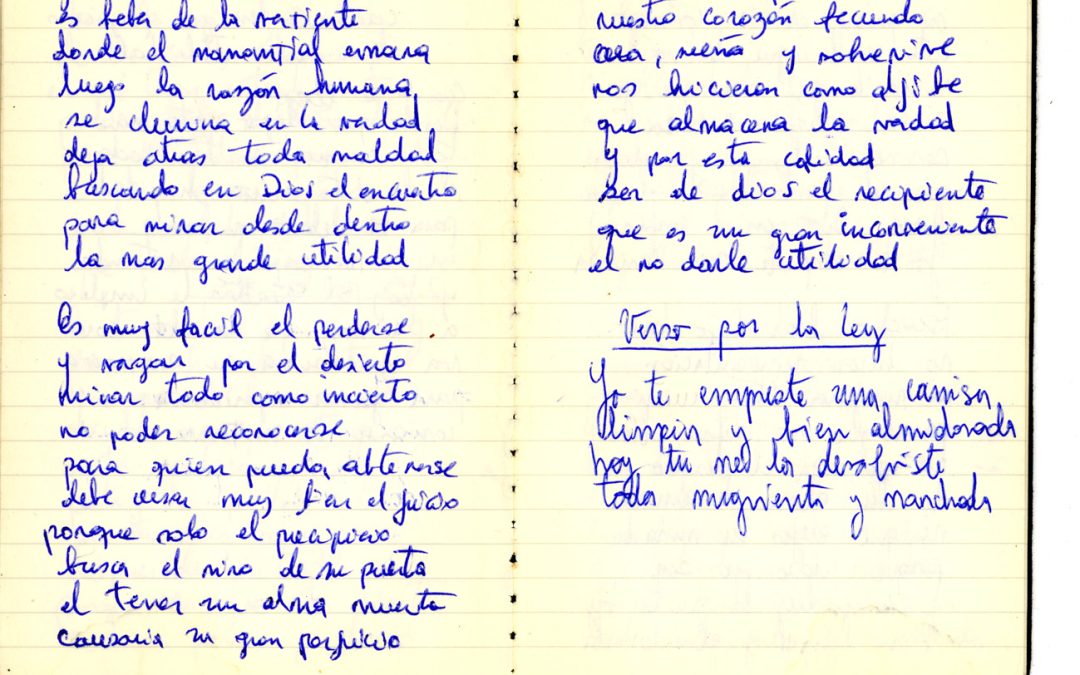 es beber de la vertiente
donde el manantial emana
luego la razón humana
se eleva en la verdad
deja atras toda maldad
buscando en Dios el encuentro
para mirar desde dentro
la mas grande utilidad
Es muy facil el perderse
y vagar por el desierto
mirar todo como incierto
no poder reconocerse
para quien pueda abtenerse
debe usar muy bien el juicio
porque solo el precipicio
busca el niño de su puerta
el tener un alma muerta
causaria un gran perjuicio
nuestro corazón fecundo
crea, sueña y sobrevive
nos hicieron como aljibe
que almacena la verdad
y por esta calidad
ser de dios el recipiente
que es un gran inconveniente
el no darle utilidad
Verso por la ley
Yo te empreste una camisa
limpia y bien almidonada
hoy tu me la devolviste
toda mugrienta y manchada